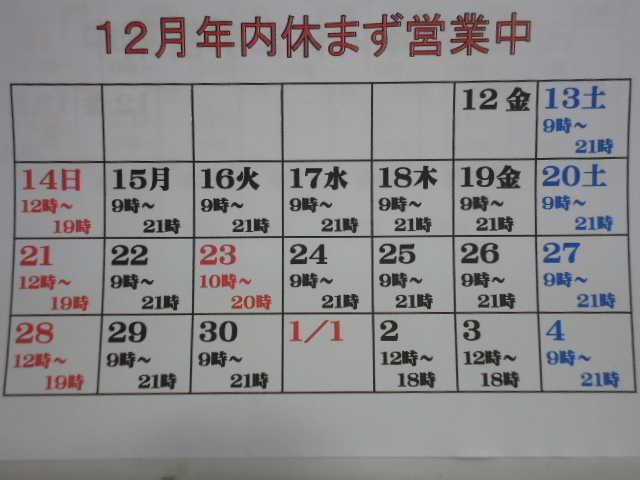 12月年内休まず営業中
12 金 13 土
9時～
21時
14日 15月 16火 17水 18木 19金 20土
12時～ 9時～ 9時～ 9時～ 9時～ 9時～ 9時～
19時 21時 21時 21時 21時 21時 21時
21 22 23 24 25 26 27
12時～ 9時～ 10時～ 9時～ 9時～ 9時～ 9時～
19時 21時 20時 21時 21時 21時 21時
28 29 30 1／1 2 3 4
12時～ 9時～ 9時～ 12時～ 12時～ 9時～
19時 21時 21時 18時 18時 21時